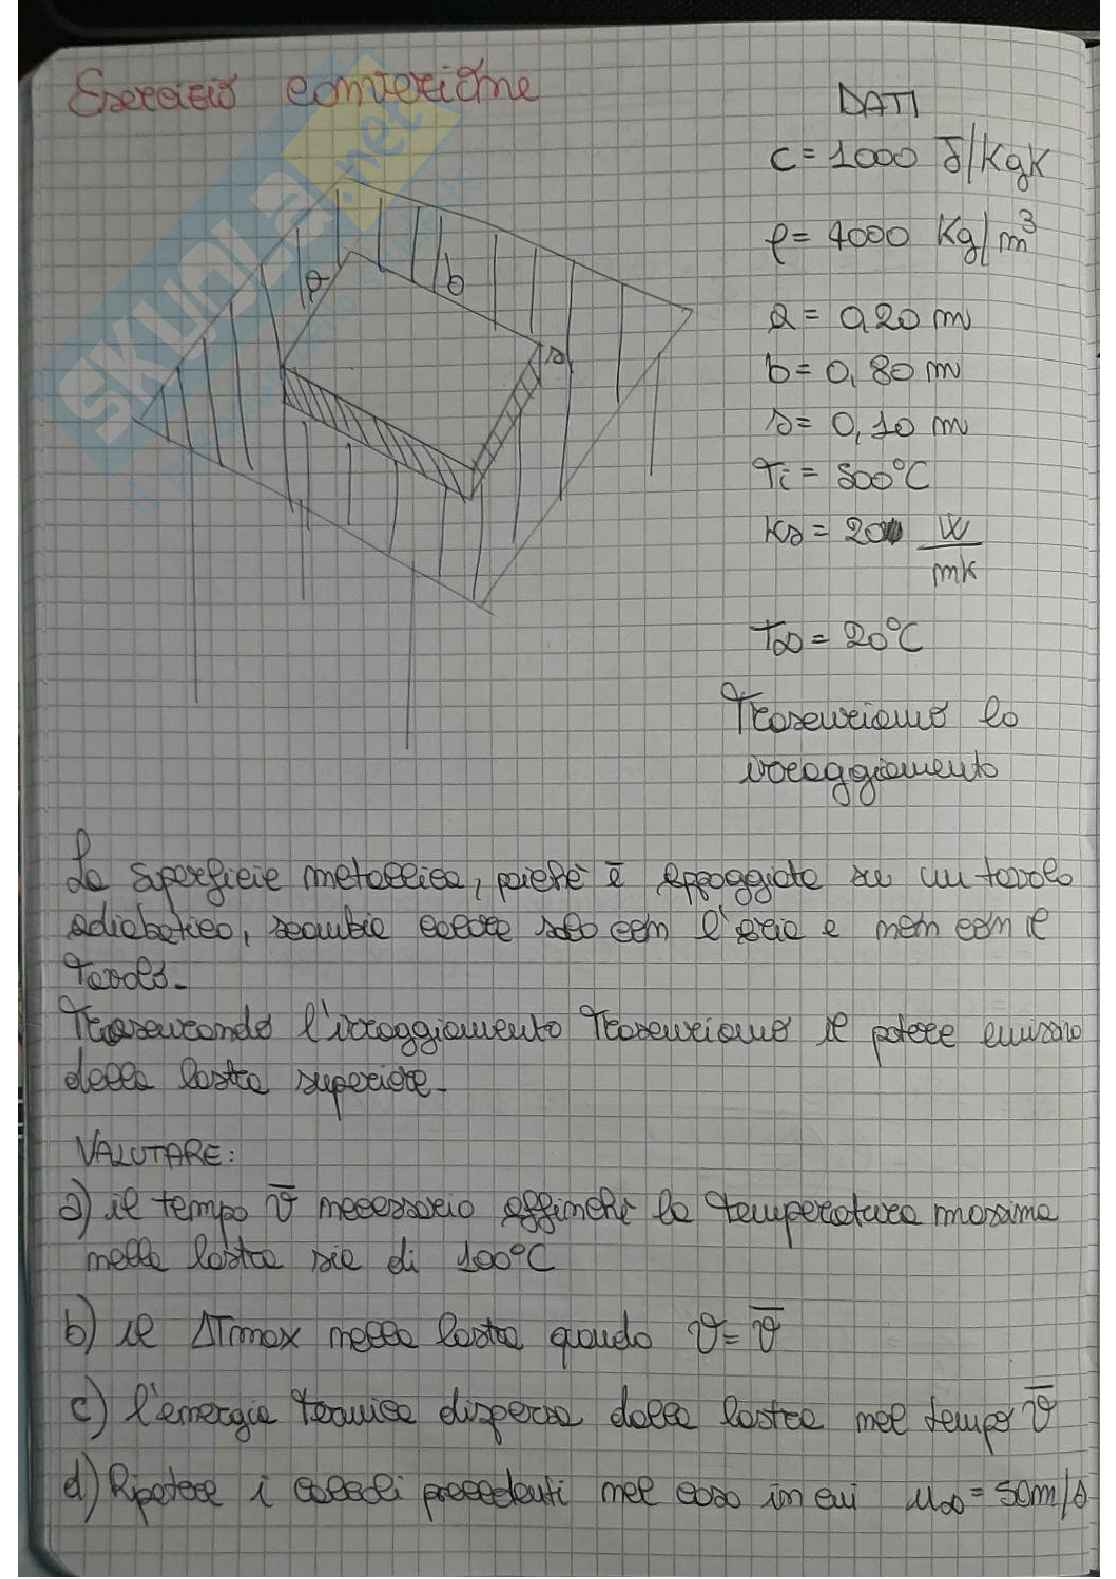 Esercizio convezione
SKUOLA.net
DATI
c = 1000 J/KgK
ρ = 4000 Kg/m³
a = 0,20 m
b = 0,80 m
s = 0,10 m
Ti = 500°C
Ks = 20 W/mK
T∞ = 20°C
Trascuriamo lo
irraggiamento
a
b
s
La superficie metallica, poiché è appoggiata su un tavolo
adiabatico, scambia calore solo con l'aria e non con il
tavolo.
Trascurando l'irraggiamento trascuriamo il potere emissivo
della lastra superiore.
VALUTARE:
a) il tempo ϑ̅ necessario affinché la temperatura massima
nella lastra sia di 100°C
b) il ΔTmax nella lastra quando ϑ = ϑ̅
c) l'energia termica dispersa dalla lastra nel tempo ϑ̅
d) Ripetere i calcoli precedenti nel caso in cui u∞ = 50m/s